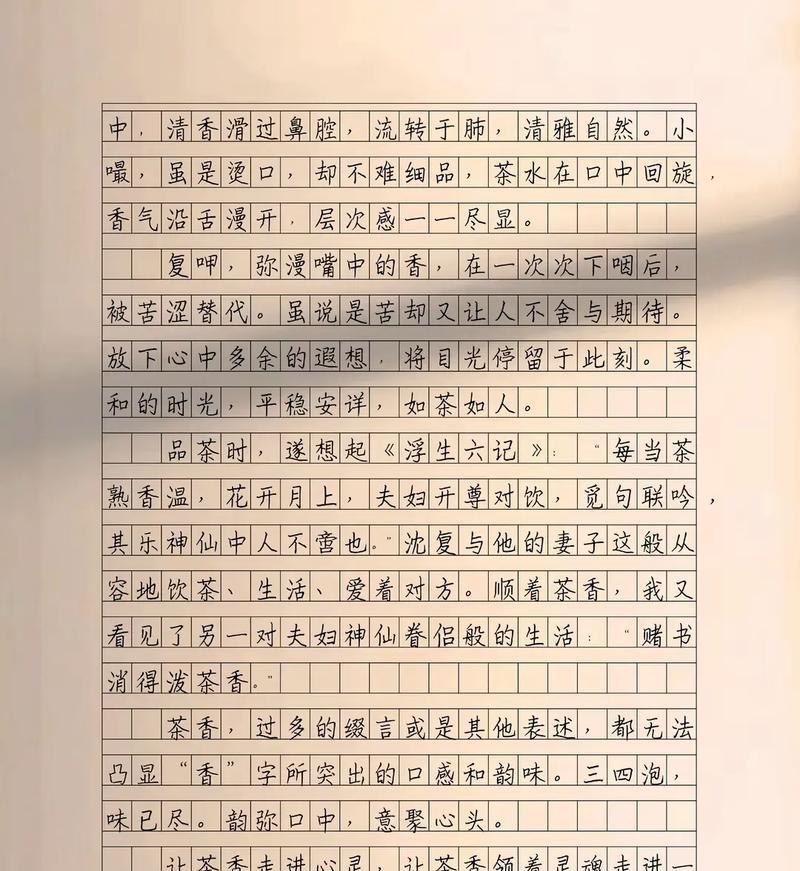 中，清香滑过鼻腔，流转于肺，清雅自然。小
嘬，虽是烫口，却不难细品，茶水在口中回旋，
香气沿舌漫开，层次感一一尽显。
复呷，弥漫嘴中的香，在一次次下咽后，
被苦涩替代。虽说是苦却又让人不舍与期待。
放下心中多余的遐想，将目光停留于此刻。柔
和的时光，平稳安详，如茶如人。
品茶时，遂想起《浮生六记》：“每当茶
熟香温，花开月上，夫妇开尊对饮，觅句联吟，
其乐神仙中人不啻也。”沈复与他的妻子这般从
容地饮茶、生活、爱着对方。顺着茶香，我又
看见了另一对夫妇神仙眷侣般的生活：“赌书
消得泼茶香。”
茶香，过多的缀言或是其他表述，都无法
凸显“香”字所突出的口感和韵味。三四泡，
味已尽。韵弥口中，意聚心头。
让茶香走进心灵，让茶香领着灵魂走进一